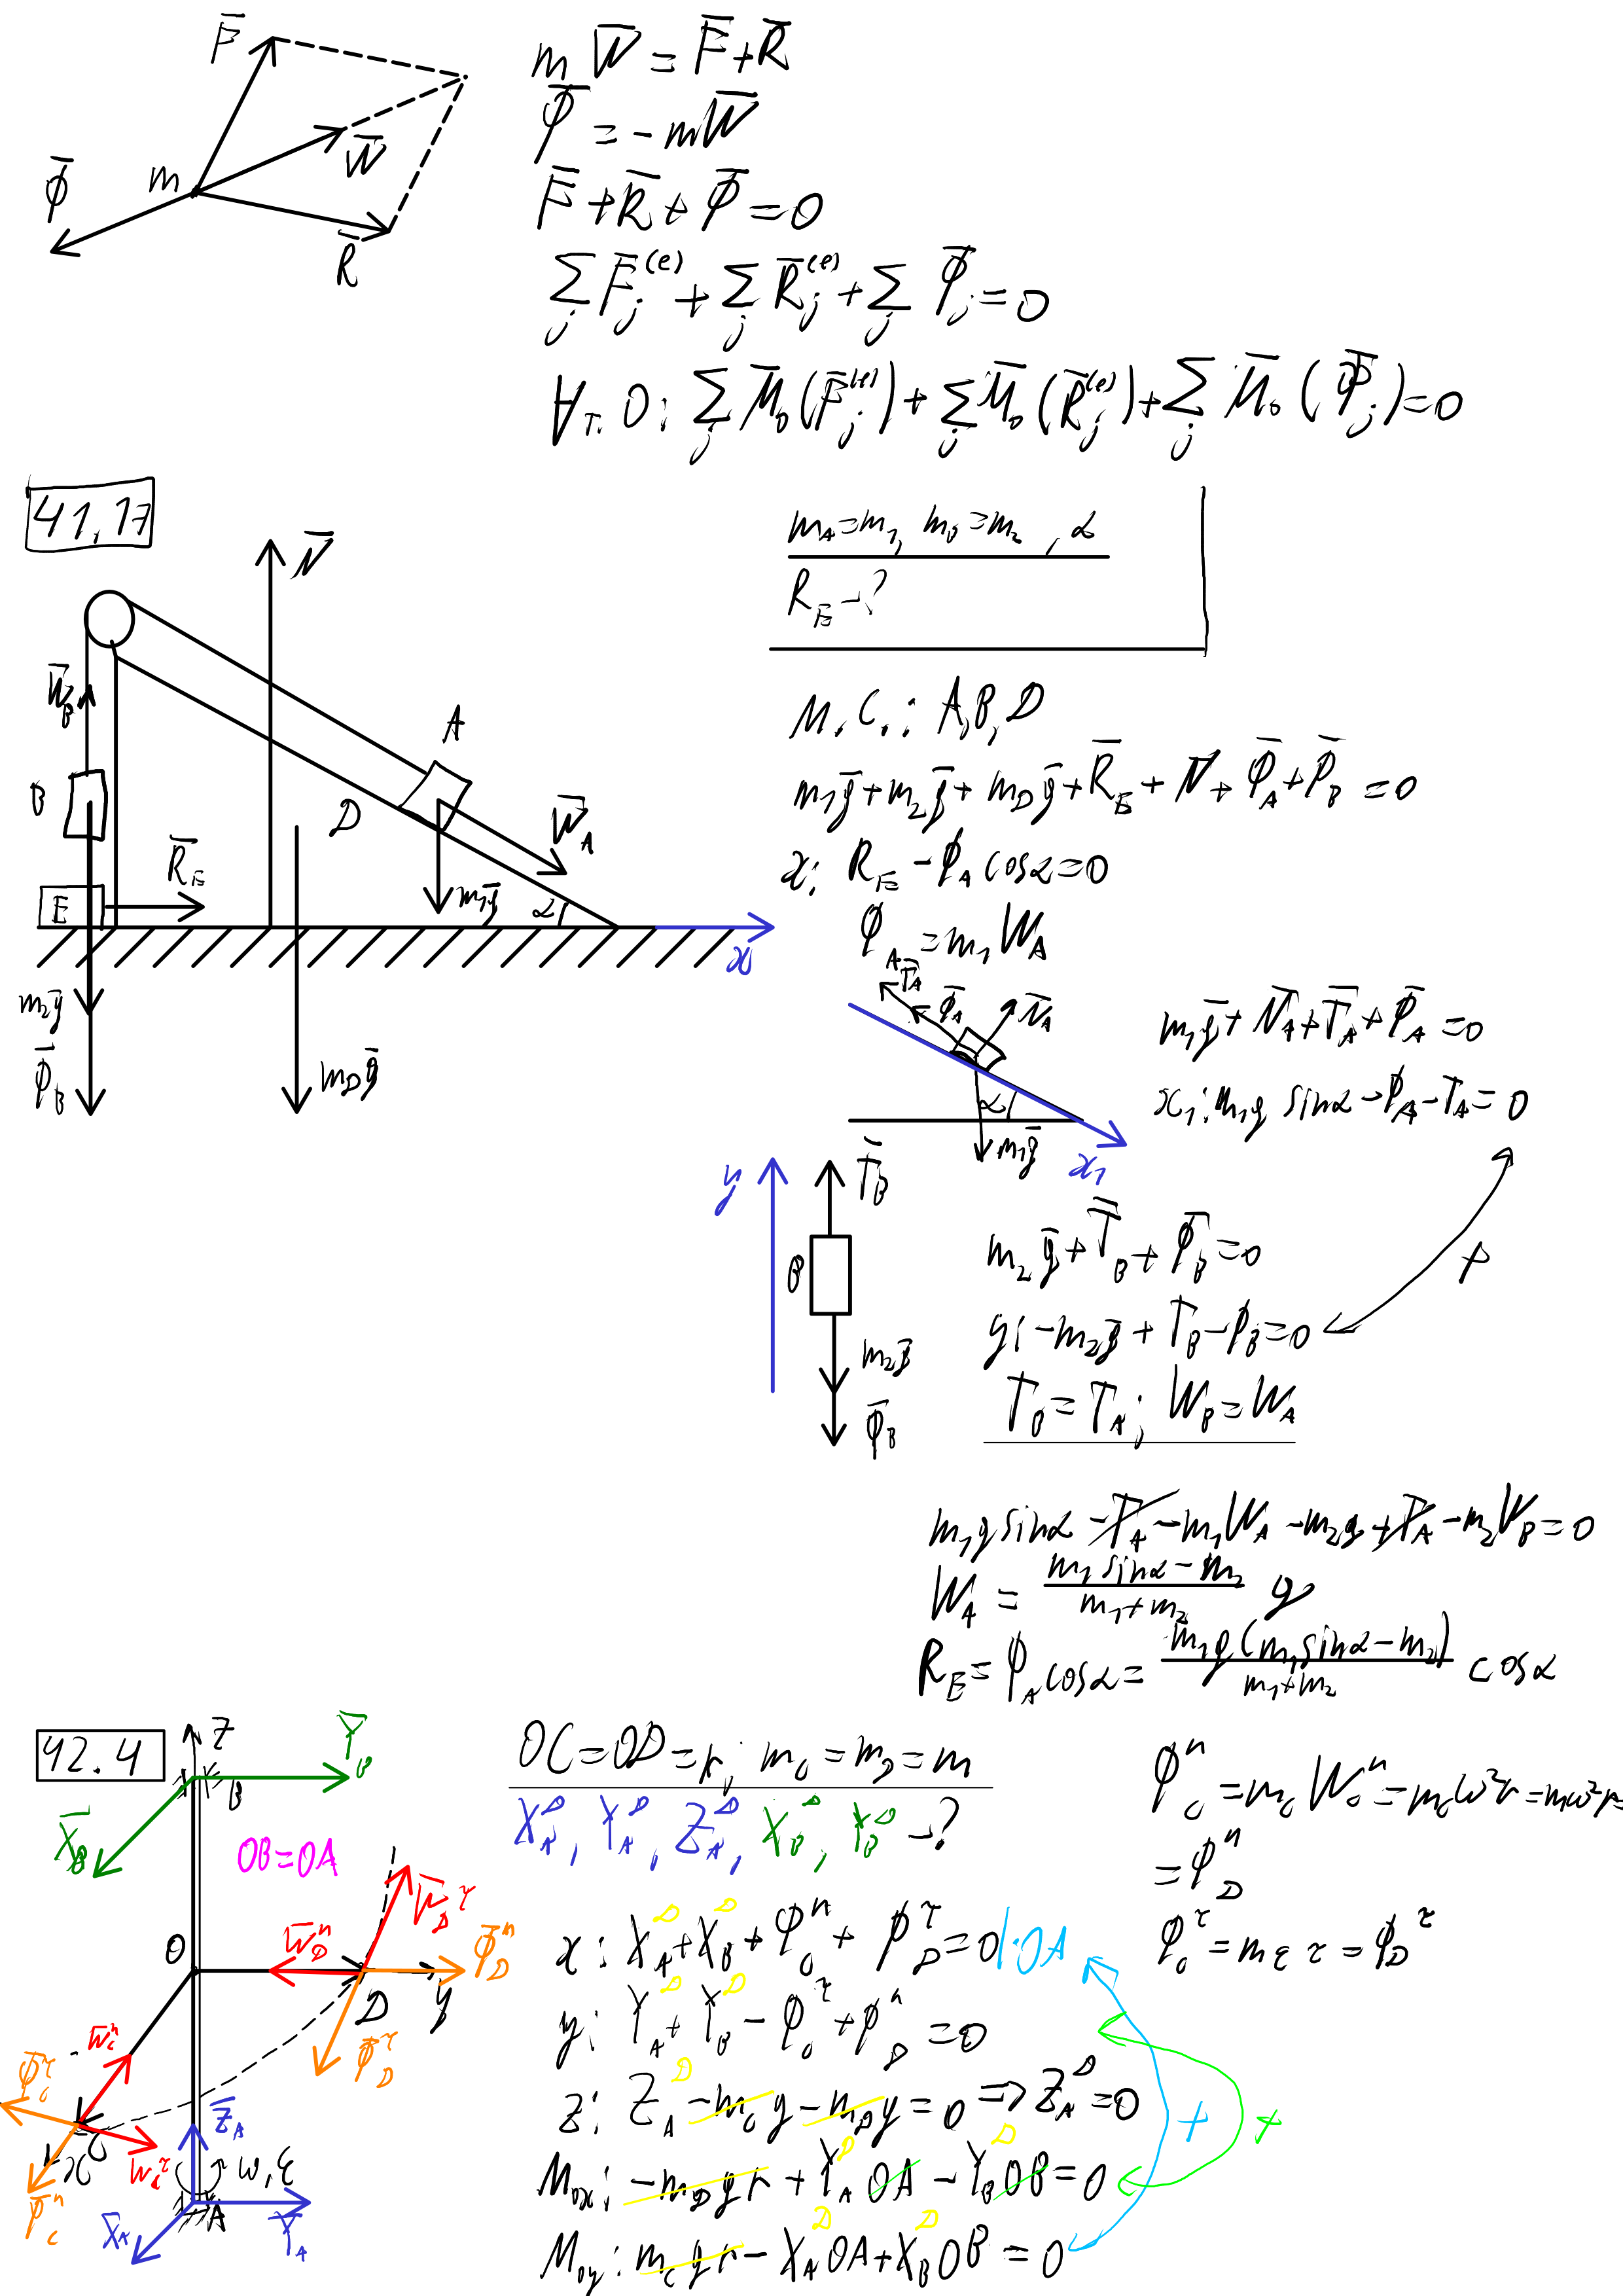 F̄
W̄
Φ̄
m
R̄
m W̄ = F̄ + R̄
Φ̄ = -mW̄
F̄ + R̄ + Φ̄ = 0
∑_j F̄_j^(e) + ∑_j R̄_j^(e) + ∑_j Φ̄_j = 0
∀ т. O: ∑_j M̄_0(F̄_j^(e)) + ∑_j M̄_0(R̄_j^(e)) + ∑_j M̄_0(Φ̄_j) = 0
41.17
m_A = m_1, m_B = m_2, α
R_E - ?
N̄
W̄_B
A
B
D
W̄_A
R̄_E
E
m_1ḡ
α
x
m_2ḡ
Φ̄_B
m_Dḡ
М.С.: A, B, D
m_1ḡ + m_2ḡ + m_Dḡ + R̄_E + N̄ + Φ̄_A + Φ̄_B = 0
x: R_E - Φ_A cosα = 0
Φ_A = m_1 W_A
T̄_A
Φ̄_A
N̄_A
α
m_1ḡ
x_1
m_1ḡ + N̄_A + T̄_A + Φ̄_A = 0
x_1: m_1g sinα - Φ_A - T_A = 0
y
T̄_B
B
m_2ḡ
Φ̄_B
m_2ḡ + T̄_B + Φ̄_B = 0
y: -m_2g + T_B - Φ_B = 0
+
T_B = T_A; W_B = W_A
m_1g sinα - T_A - m_1W_A - m_2g + T_A - m_2W_B = 0
W_A = (m_1 sinα - m_2)/(m_1 + m_2) g
R_E = Φ_A cosα = m_1g(m_1 sinα - m_2)/(m_1 + m_2) cosα
42.4
z
Ȳ_B
B
X̄_B
OB = OA
W̄_D^τ
O
W̄_D^n
Φ̄_D^n
D
y
Φ̄_D^τ
W̄_C^n
Φ̄_C^τ
C
x
W_C^τ
Φ̄_C^n
Z̄_A
ω, ε
A
X̄_A
Ȳ_A
OC = OD = r; m_C = m_D = m
X_A^D, Y_A^D, Z_A^D, X_B^D, Y_B^D - ?
x: X_A^D + X_B^D + Φ_C^n + Φ_D^τ = 0 | · OA
y: Y_A^D + Y_B^D - Φ_C^τ + Φ_D^n = 0
z: Z_A^D - m_C g - m_D g = 0 => Z_A^D = 0
M_ox: -m_D g r + Y_A^D OA - Y_B^D OB = 0
M_oy: m_C g r - X_A^D OA + X_B^D OB = 0
+
+
Φ_C^n = m_C W_C^n = m_C ω² r = mω² r =
= Φ_D^n
Φ_C^τ = m ε r = Φ_D^τ